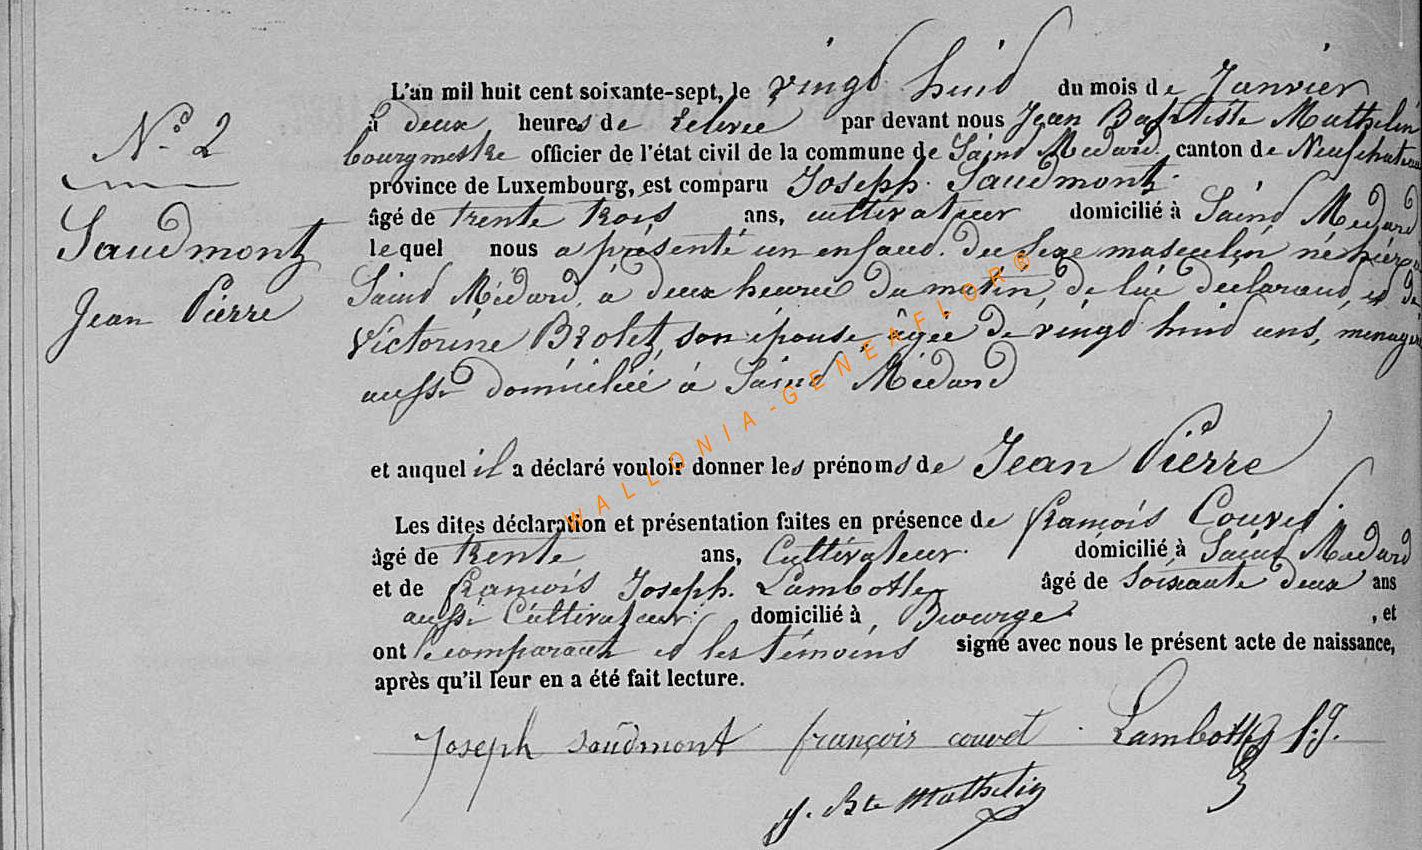 N.° 2
Saudmont
Jean Pierre
L'an mil huit cent soixante-sept, le vingd huid du mois de Janvier
à deux heures de relevée par devant nous Jean Baptiste Mathelin
bourgmestre officier de l'état civil de la commune de Saind Médard canton de Neufchateau
province de Luxembourg, est comparu Joseph Saudmont
âgé de trente trois ans, cultivateur domicilié à Saind Médard
lequel nous a présenté un enfand du sexe masculin né hier à
Saind Médard, à deux heures du matin, de lui declarand, et de
Victorine Brolet, son épouse, âgée de vingd huid ans, menagère
aussi domiciliée à Saind Médard
et auquel il a déclaré vouloir donner les prénoms de Jean Pierre
Les dites déclaration et présentation faites en présence de François Couvet
âgé de trente ans, Cultivateur domicilié à Saint Médard
et de François Joseph Lambotte âgé de Soixante deux ans
aussi Cultivateur domicilié à , et
ont le comparant et les témoins signé avec nous le présent acte de naissance,
après qu'il leur en a été fait lecture.
Joseph saudmont françois couvet Lambotte f.j.
J. Bte Mathelin
WALLONIA-GENEAFLOR®